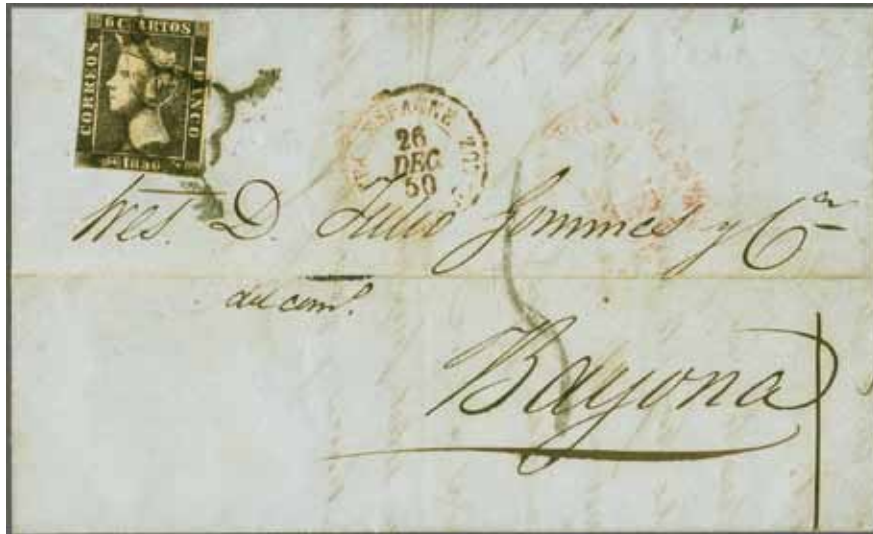 6 CUARTOS
CORREOS
FRANCO
1850
ESPAGNE
26
DEC
50
Sres. D. Julio Gommes y Cª
del comº.
Bayona